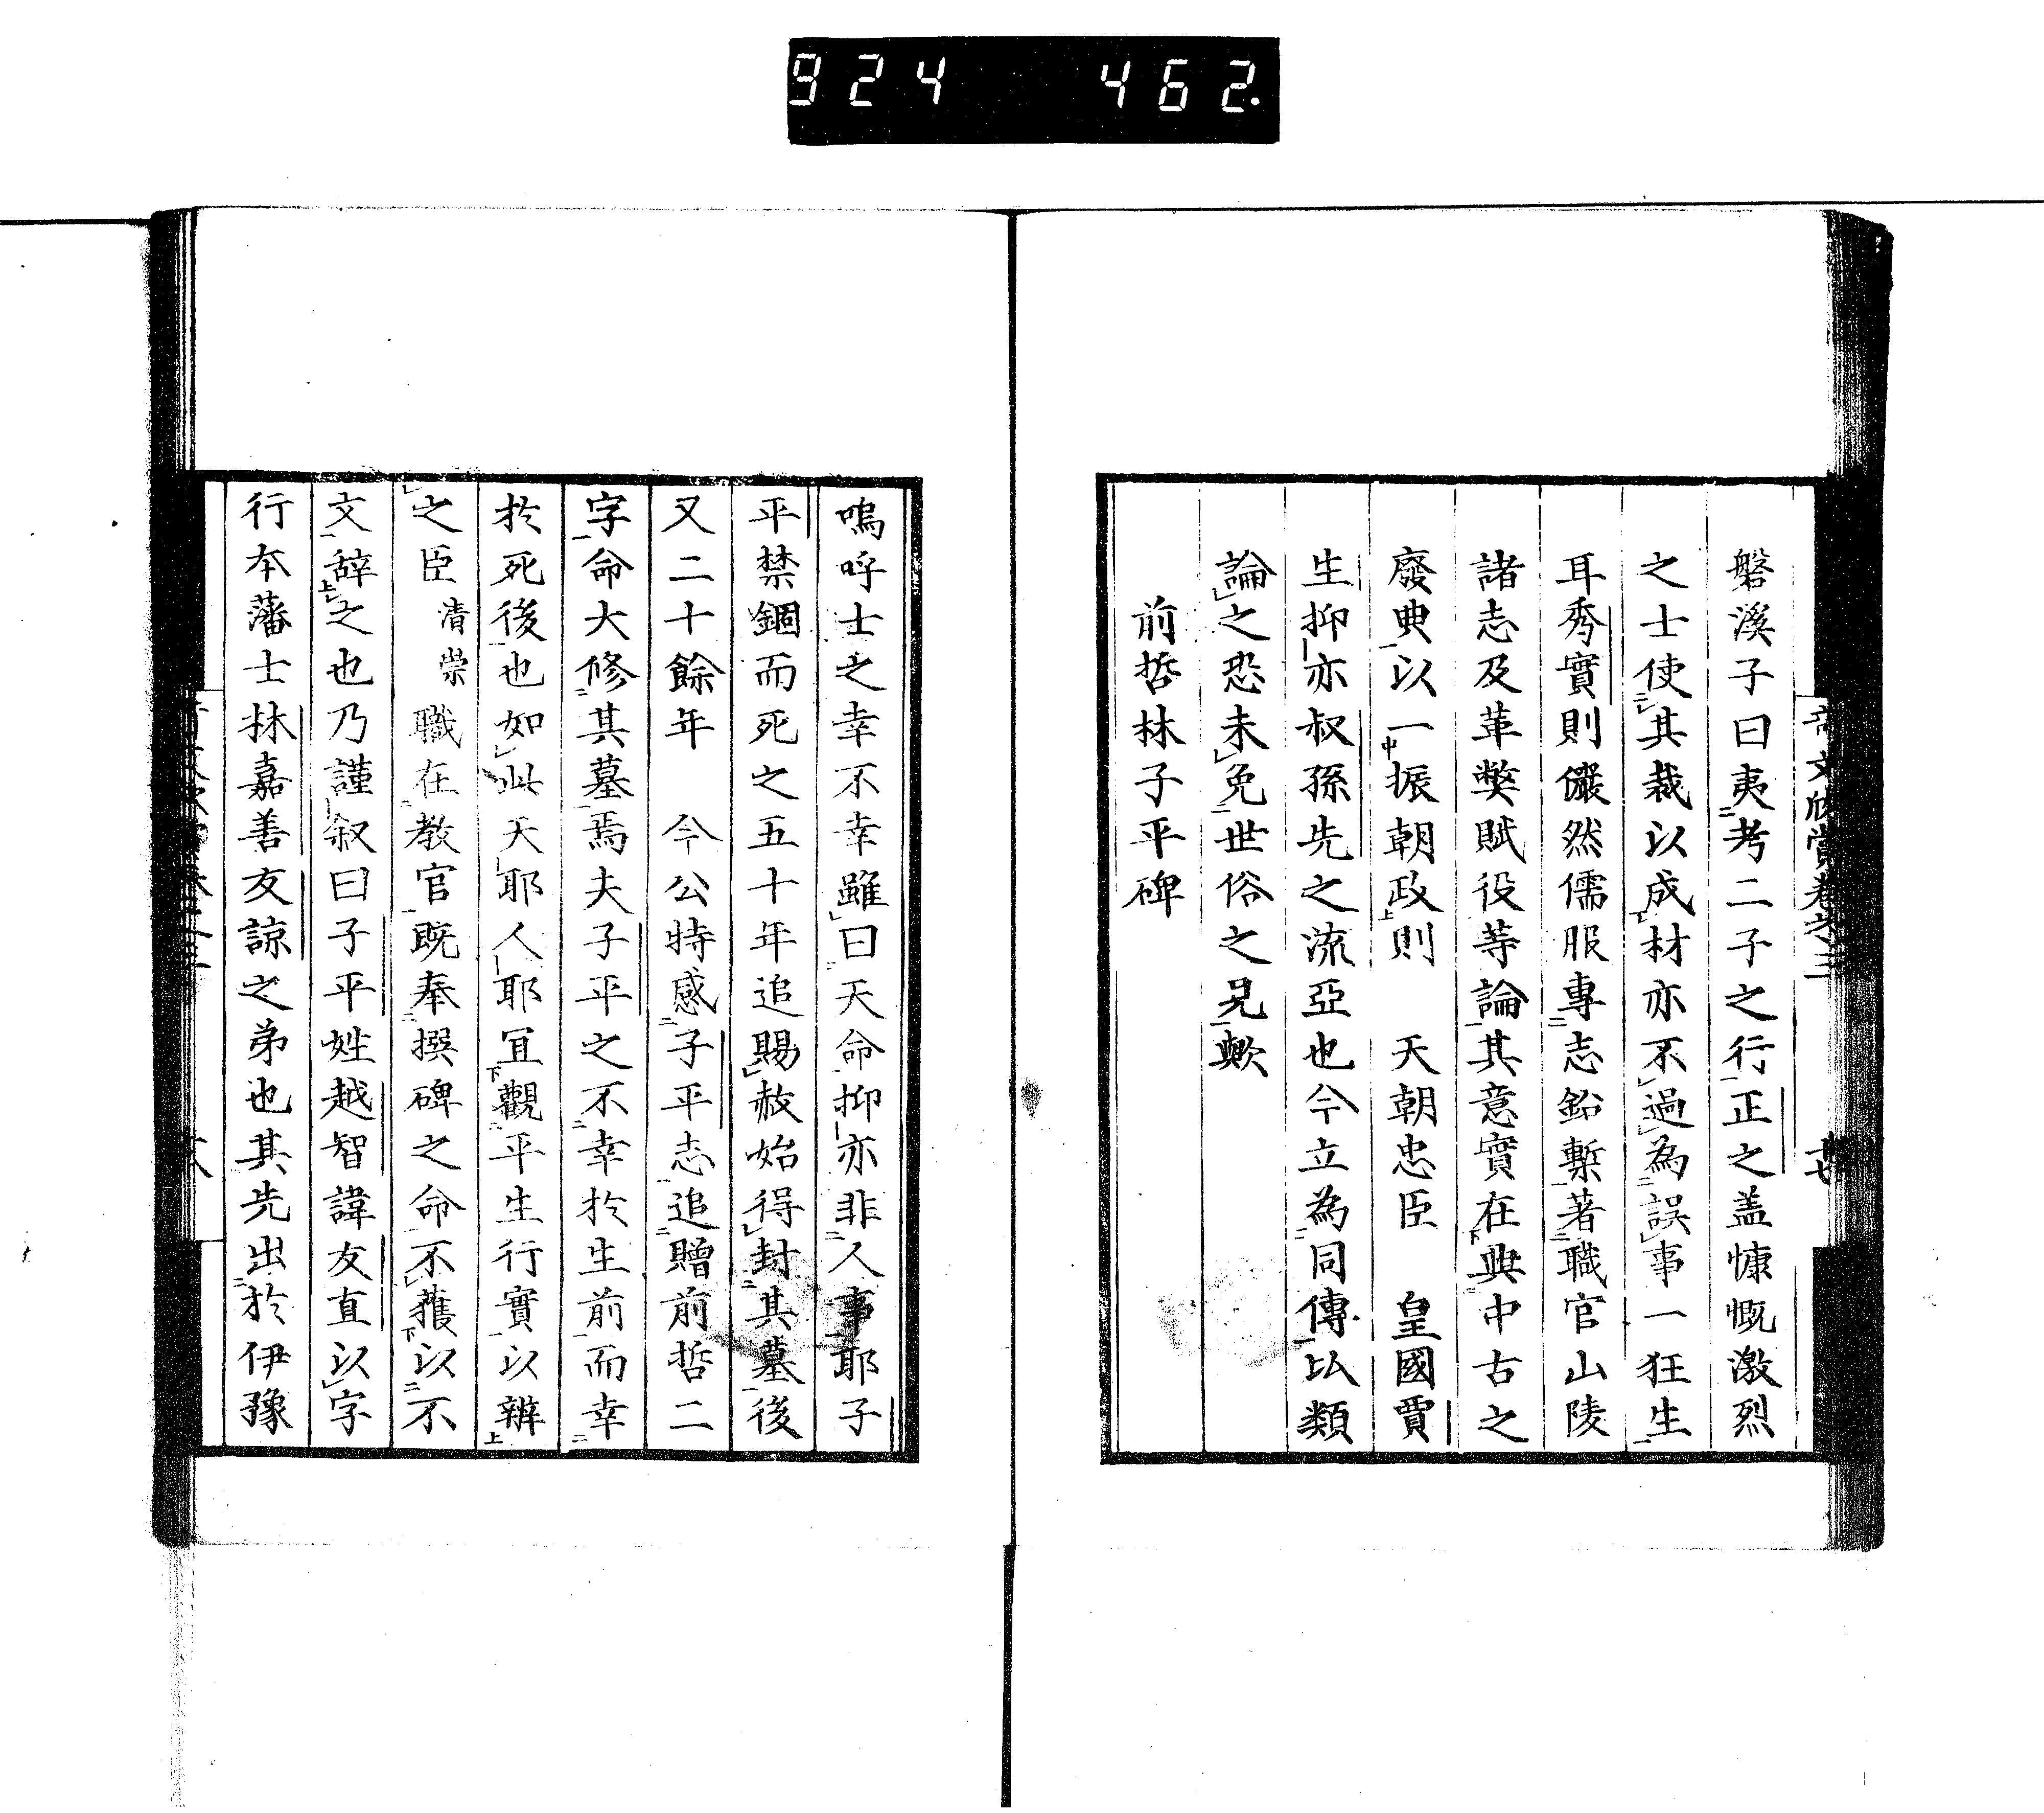 924 462.
磐溪子曰夷考二子之行正之盖慷慨激烈
之士使其裁以成材亦不過為誤事一狂生
耳秀實則儼然儒服專志鉛槧著職官山陵
諸志及革獘賦役等論其意實在興中古之
廢典以一振朝政則 天朝忠臣 皇國賈
生抑亦叔孫先之流亞也今立為同傳以類
論之恐未免世俗之見歟
前哲林子平碑
嗚呼士之幸不幸雖曰天命抑亦非人事耶子
平禁錮而死之五十年追賜赦始得封其墓後
又二十餘年 今公特感子平志追贈前哲二
字命大修其墓焉夫子平之不幸於生前而幸
於死後也如此天耶人耶宜觀平生行實以辨
之臣清崇職在教官既奉撰碑之命不獲以不
文辭之也乃謹叙曰子平姓越智諱友直以字
行本藩士林嘉善友諒之弟也其先出於伊豫